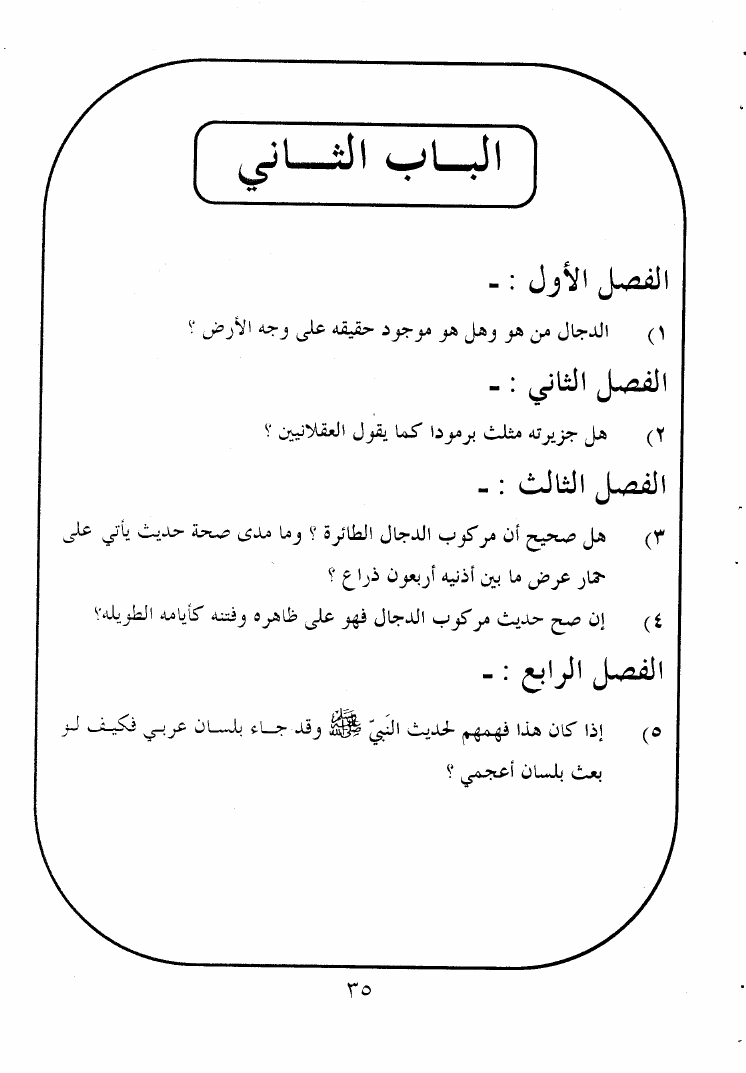 الباب الثاني
الفصل الأول : -
١) الدجال من هو وهل هو موجود حقيقه على وجه الأرض ؟
الفصل الثاني : -
٢) هل جزيرته مثلث برمودا كما يقول العقلانيين ؟
الفصل الثالث : -
٣) هل صحيح أن مركوب الدجال الطائرة ؟ وما مدى صحة حديث يأتي على
حمار عرض ما بين أذنيه أربعون ذراع ؟
٤) إن صح حديث مركوب الدجال فهو على ظاهره وفتنه كأيامه الطويله؟
الفصل الرابع : -
٥) إذا كان هذا فهمهم لحديث النَبيّ ﷺ وقد جاء بلسان عربي فكيف لو
بعث بلسان أعجمي ؟
٣٥